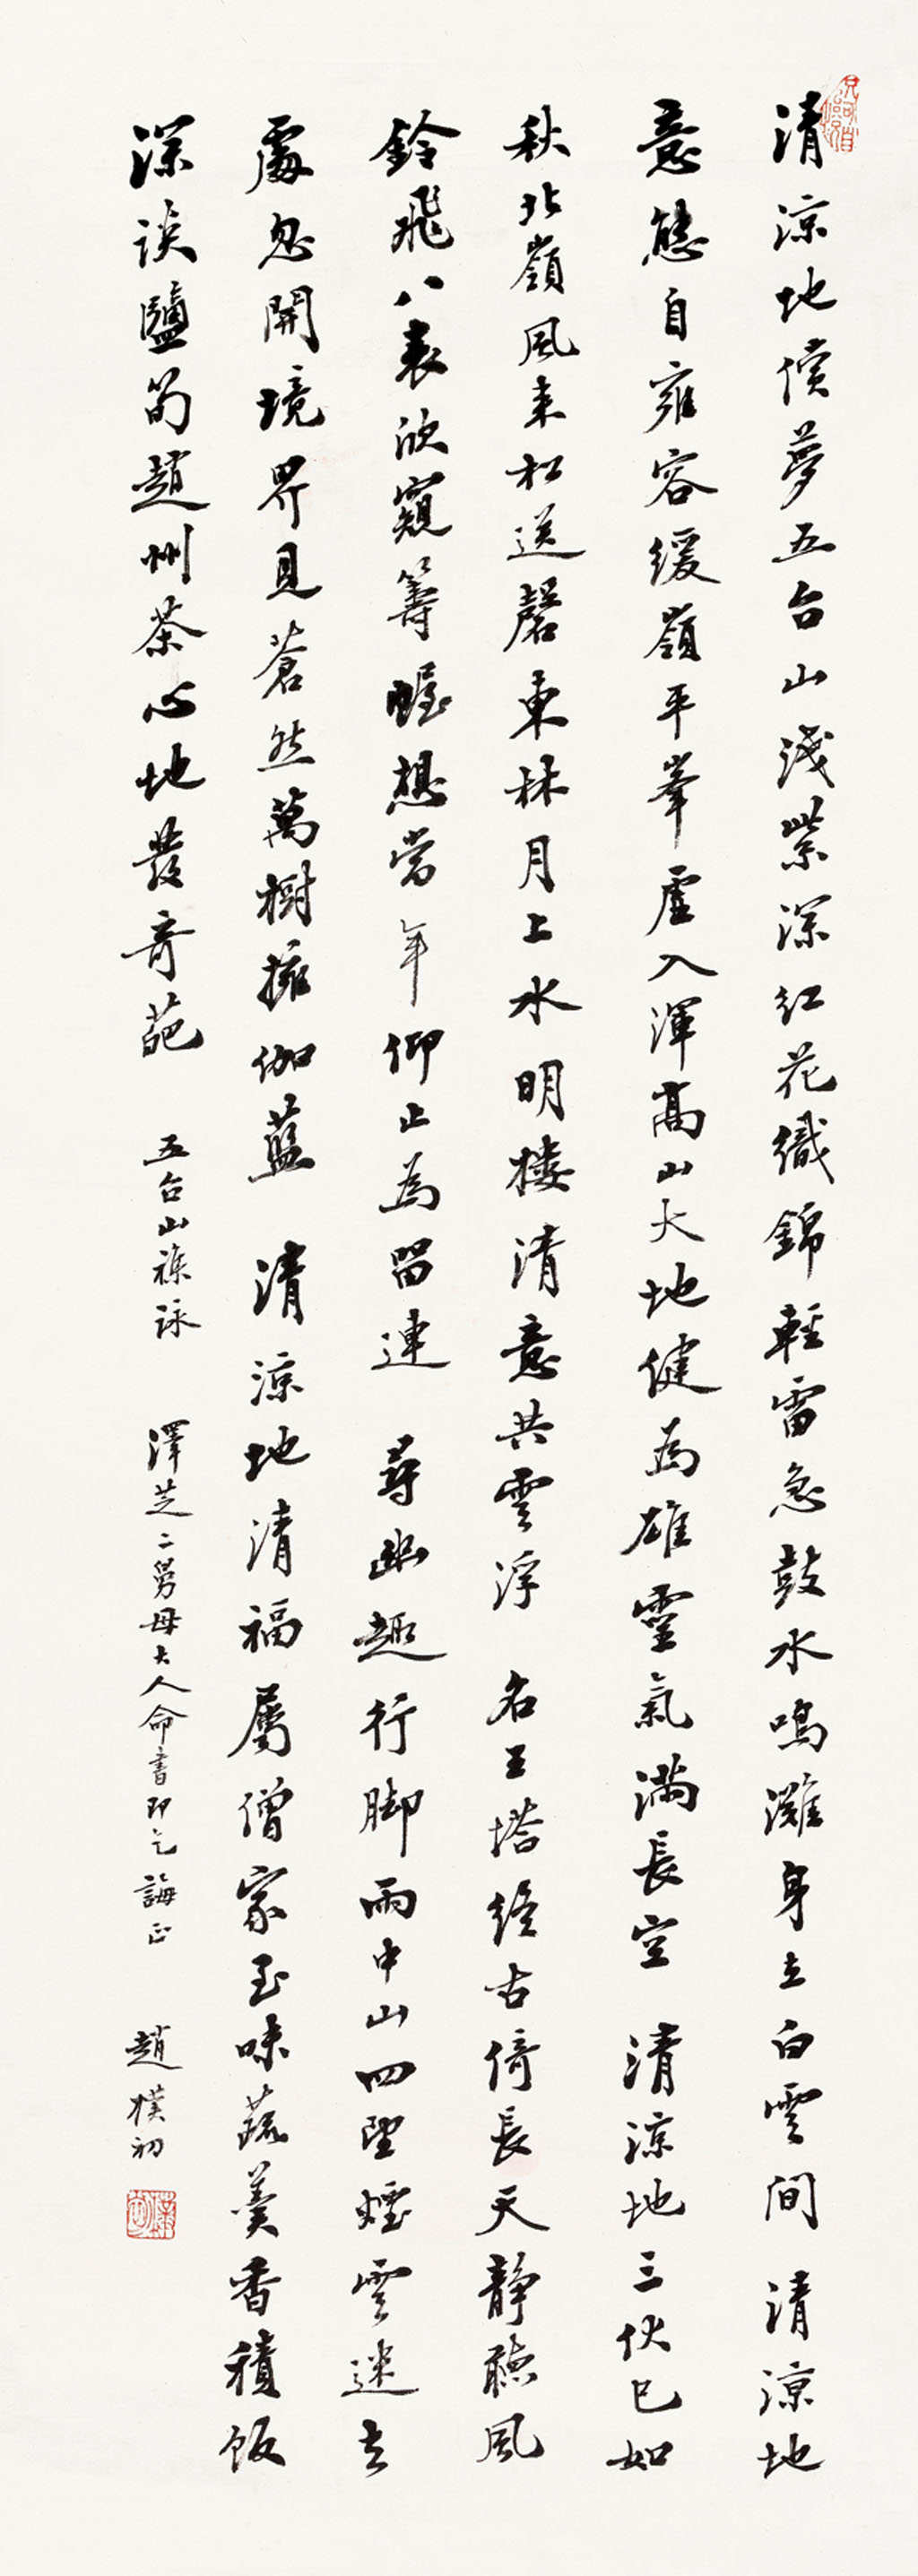 清涼地償夢五台山淺紫深紅花織錦輕雷急鼓水鳴灘身立白雲間 清涼地
意態自雍容緩嶺平峯虛入渾高山大地健為雄靈氣滿長空 清涼地三伏已如
秋北嶺風來松送磬東林月上水明樓清意共雲浮 名王塔終古倚長天靜聽風
鈴飛八表欣窺籌幄想當年仰止為留連 尋幽趣行脚雨中山四望煙雲迷去
處忽開境界見蒼然萬樹擁伽藍 清涼地清福屬僧家至味蔬羹香積飯
深談鹽筍趙州茶心地發奇葩 五台山襍詠 澤芝二舅母大人命書即乞誨正 趙樸初